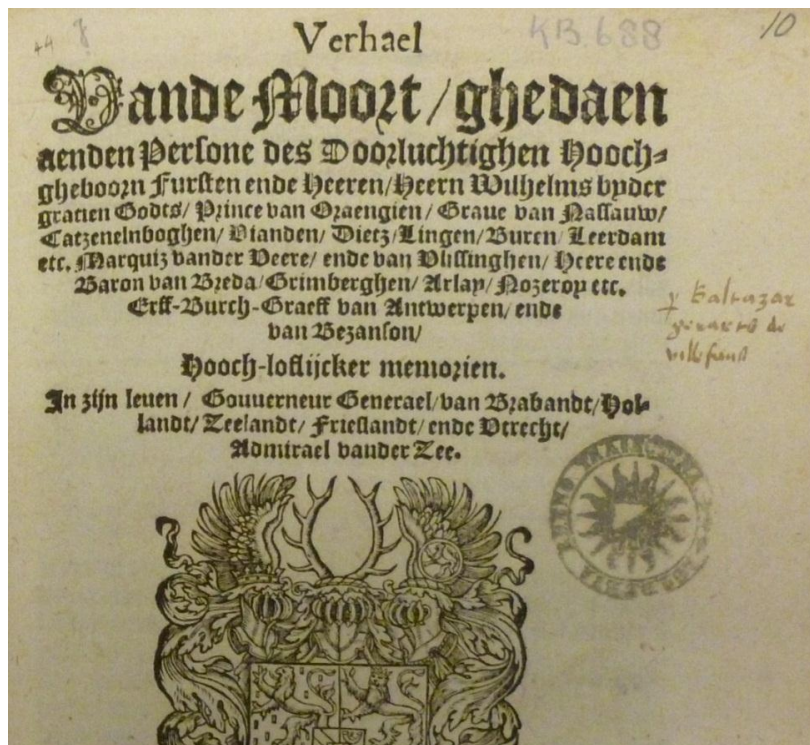 KB 688
10
Verhael
Vande Moort / ghedaen
aenden Persone des Doorluchtighen Hooch-
gheboorn Fursten ende Heeren/Heern Wilhelms byder
gratien Godts/ Prince van Oraengien/ Graue van Nassauw/
Catzenelnboghen/ Vianden/ Dietz/Lingen/Buren/ Leerdam
etc. Marquiz vander Veere/ ende van Vlissinghen/ Heere ende
Baron van Breda/Grimberghen/ Arlay/Nozeroy etc.
Erff-Burch-Graeff van Antwerpen/ ende
van Bezanson/
Baltazar
Hooch-loflijcker memorien.
In zijn leuen / Gouuerneur Generael/van Brabandt/Hol-
landt/Zeelandt/ Frieslandt/ ende Vtrecht/
Admirael vander Zee.